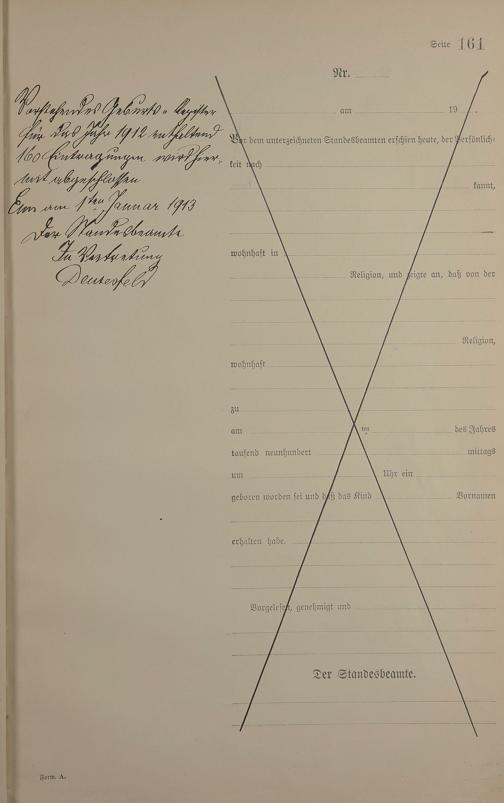 Seite 161
Vorstehendes Geburts-Register
für das Jahr 1912 enthaltend
160 Eintragungen wird hier-
mit abgeschlossen
Elm am 1ten Januar 1913
Der Standesbeamte
In Vertretung
Deusesfeld
Nr.
am 19
Vor dem unterzeichneten Standesbeamten erschien heute, der Persönlich-
keit nach
kannt,
wohnhaft in
Religion, und zeigte an, daß von der
Religion,
wohnhaft
zu
am ten des Jahres
tausend neunhundert mittags
um Uhr ein
geboren worden sei und daß das Kind Vornamen
erhalten habe.
Vorgelesen, genehmigt und
Der Standesbeamte.
Form. A.